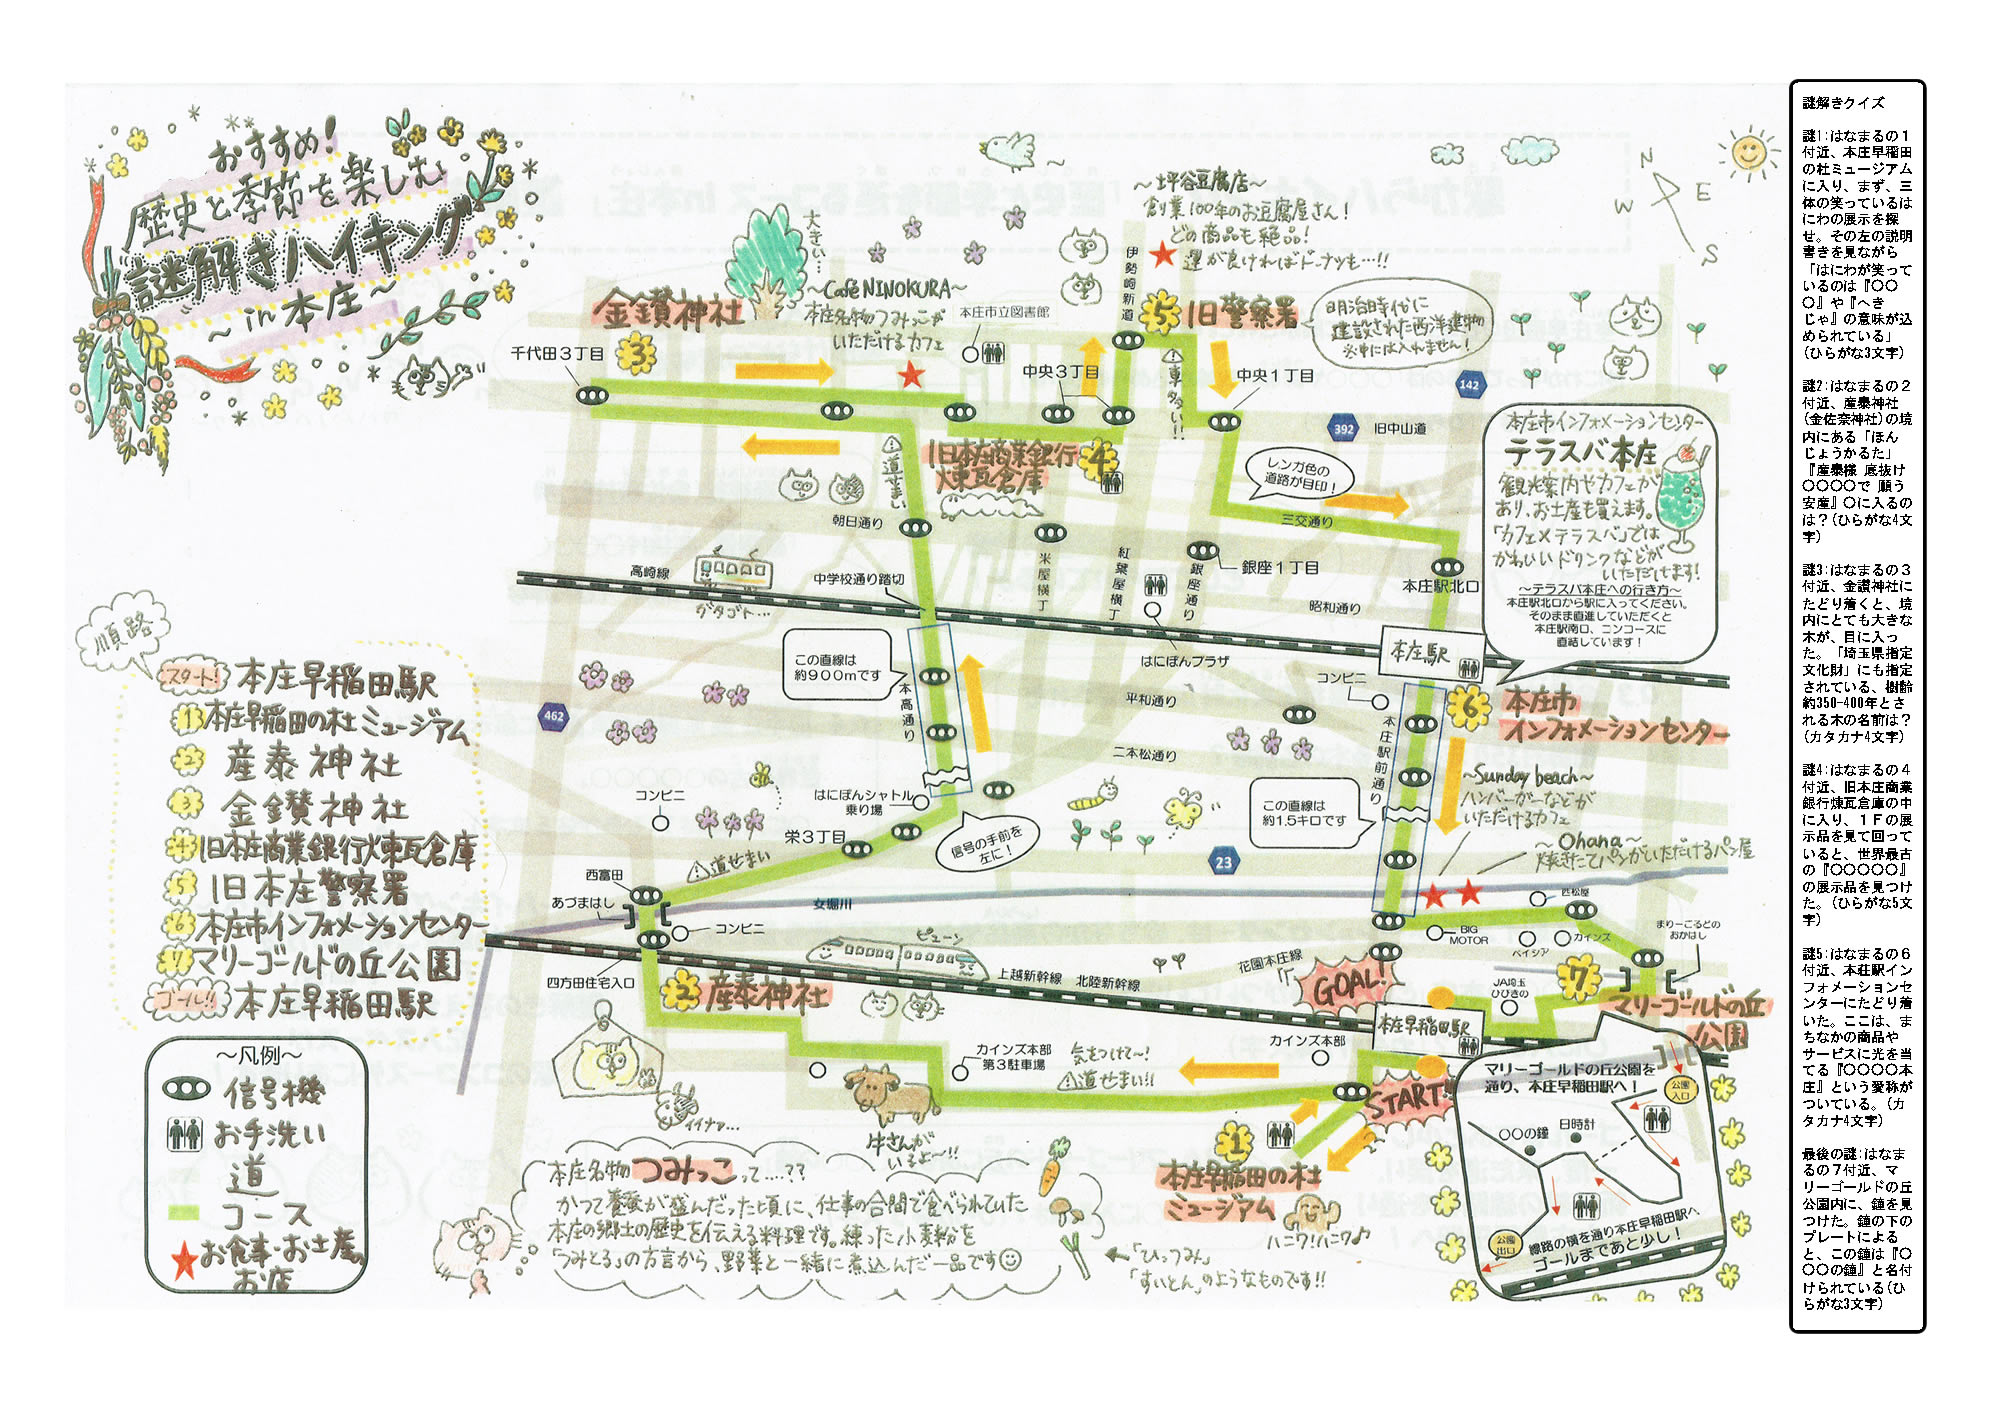 おすすめ!
歴史と季節を楽しむ
謎解きハイキング
～in 本庄～
順路
スタート! 本庄早稲田駅
1 本庄早稲田の杜ミュージアム
2 産泰神社
3 金鑚神社
4 旧本庄商業銀行煉瓦倉庫
5 旧本庄警察署
6 本庄市インフォメーションセンター
7 マリーゴールドの丘公園
ゴール!! 本庄早稲田駅
～凡例～
信号機
お手洗い
道
コース
お食事・お土産。
お店
大きい…
金鑚神社
3
千代田3丁目
～Café NINOKURA～
本庄名物つみっこが
いただけるカフェ
本庄市立図書館
伊勢崎新道
～坪谷豆腐店～
創業100年のお豆腐屋さん!
どの商品も絶品!
運が良ければドーナツも…!!
5 旧警察署
明治時代に
建設された西洋建物
※中には入れません!
N
E
W
S
中央3丁目
車多い!!
中央1丁目
142
392
旧中山道
旧本庄商業銀行
煉瓦倉庫
4
道せまい
レンガ色の
道路が目印!
三交通り
本庄市インフォメーションセンター
テラスバ本庄
観光案内やカフェが
あり、お土産も買えます。
「カフェ×テラスバ」では
かわいいドリンクなどが
いただけます!
～テラスバ本庄への行き方～
本庄駅北口から駅に入ってください。
そのまま直進していただくと
本庄駅南口、ニンコースに
直結しています!
朝日通り
米屋横丁
紅葉屋横丁
銀座通り
銀座1丁目
本庄駅北口
高崎線
ガタゴト…
中学校通り踏切
昭和通り
はにぽんプラザ
本庄駅
この直線は
約900mです
本高通り
462
コンビニ
平和通り
二本松通り
本庄駅前通り
6 本庄市
インフォメーションセンター
～Sunday beach～
ハンバーガーなどが
いただけるカフェ
～Ohana～
焼きたてパンがいただけるパン屋
この直線は
約1.5キロです
コンビニ
はにぽんシャトル
乗り場
栄3丁目
信号の手前を
左に!
道せまい
23
西富田
あづまはし
コンビニ
女堀川
四方田住宅入口
2 産泰神社
ピューン
上越新幹線 北陸新幹線
花園本庄線
BIG
MOTOR
ベイシア
カインズ
まりーごるどの
おかはし
GOAL!
JA埼玉
ひびきの
7
マリーゴールドの丘
公園
本庄早稲田駅
カインズ本部
カインズ本部
第3駐車場
気をつけて～!
道せまい!!
START!!
牛さんが
いるよ～!!
イイナァ…
1
本庄早稲田の杜
ミュージアム
ハニワ!ハニワ♪
マリーゴールドの丘公園を
通り、本庄早稲田駅へ!
公園
入口
日時計
〇〇の鐘
公園
出口
線路の横を通り本庄早稲田駅へ
ゴールまであと少し!
本庄名物 つみっこ って…??
かつて養蚕が盛んだった頃に、仕事の合間で食べられていた
本庄の郷土の歴史を伝える料理です。練った小麦粉を
「つみとる」の方言から、野菜と一緒に煮込んだ一品です
←「ひっつみ」
「すいとん」のようなものです!!
謎解きクイズ
謎1:はなまるの1
付近、本庄早稲田
の杜ミュージアム
に入り、まず、三
体の笑っているは
にわの展示を探
せ。その左の説明
書きを見ながら
「はにわが笑って
いるのは『〇〇
〇』や『へき
じゃ』の意味が込
められている」
(ひらがな3文字)
謎2:はなまるの2
付近、産泰神社
(金佐奈神社)の境
内にある「ほん
じょうかるた」
『産泰様 底抜け
〇〇〇〇で 願う
安産』〇に入るの
は?(ひらがな4文
字)
謎3:はなまるの3
付近、金鑚神社に
たどり着くと、境
内にとても大きな
木が、目に入っ
た。「埼玉県指定
文化財」にも指定
されている、樹齢
約350-400年とさ
れる木の名前は?
(カタカナ4文字)
謎4:はなまるの4
付近、旧本庄商業
銀行煉瓦倉庫の中
に入り、1Fの展
示品を見て回って
いると、世界最古
の『〇〇〇〇〇』
の展示品を見つけ
た。(ひらがな5文
字)
謎5:はなまるの6
付近、本荘駅イン
フォメーションセ
ンターにたどり着
いた。ここは、ま
ちなかの商品や
サービスに光を当
てる『〇〇〇〇本
庄』という愛称が
ついている。(カ
タカナ4文字)
最後の謎:はなま
るの7付近、マ
リーゴールドの丘
公園内に、鐘を見
つけた。鐘の下の
プレートによる
と、この鐘は『〇
〇〇の鐘』と名付
けられている(ひ
らがな3文字)